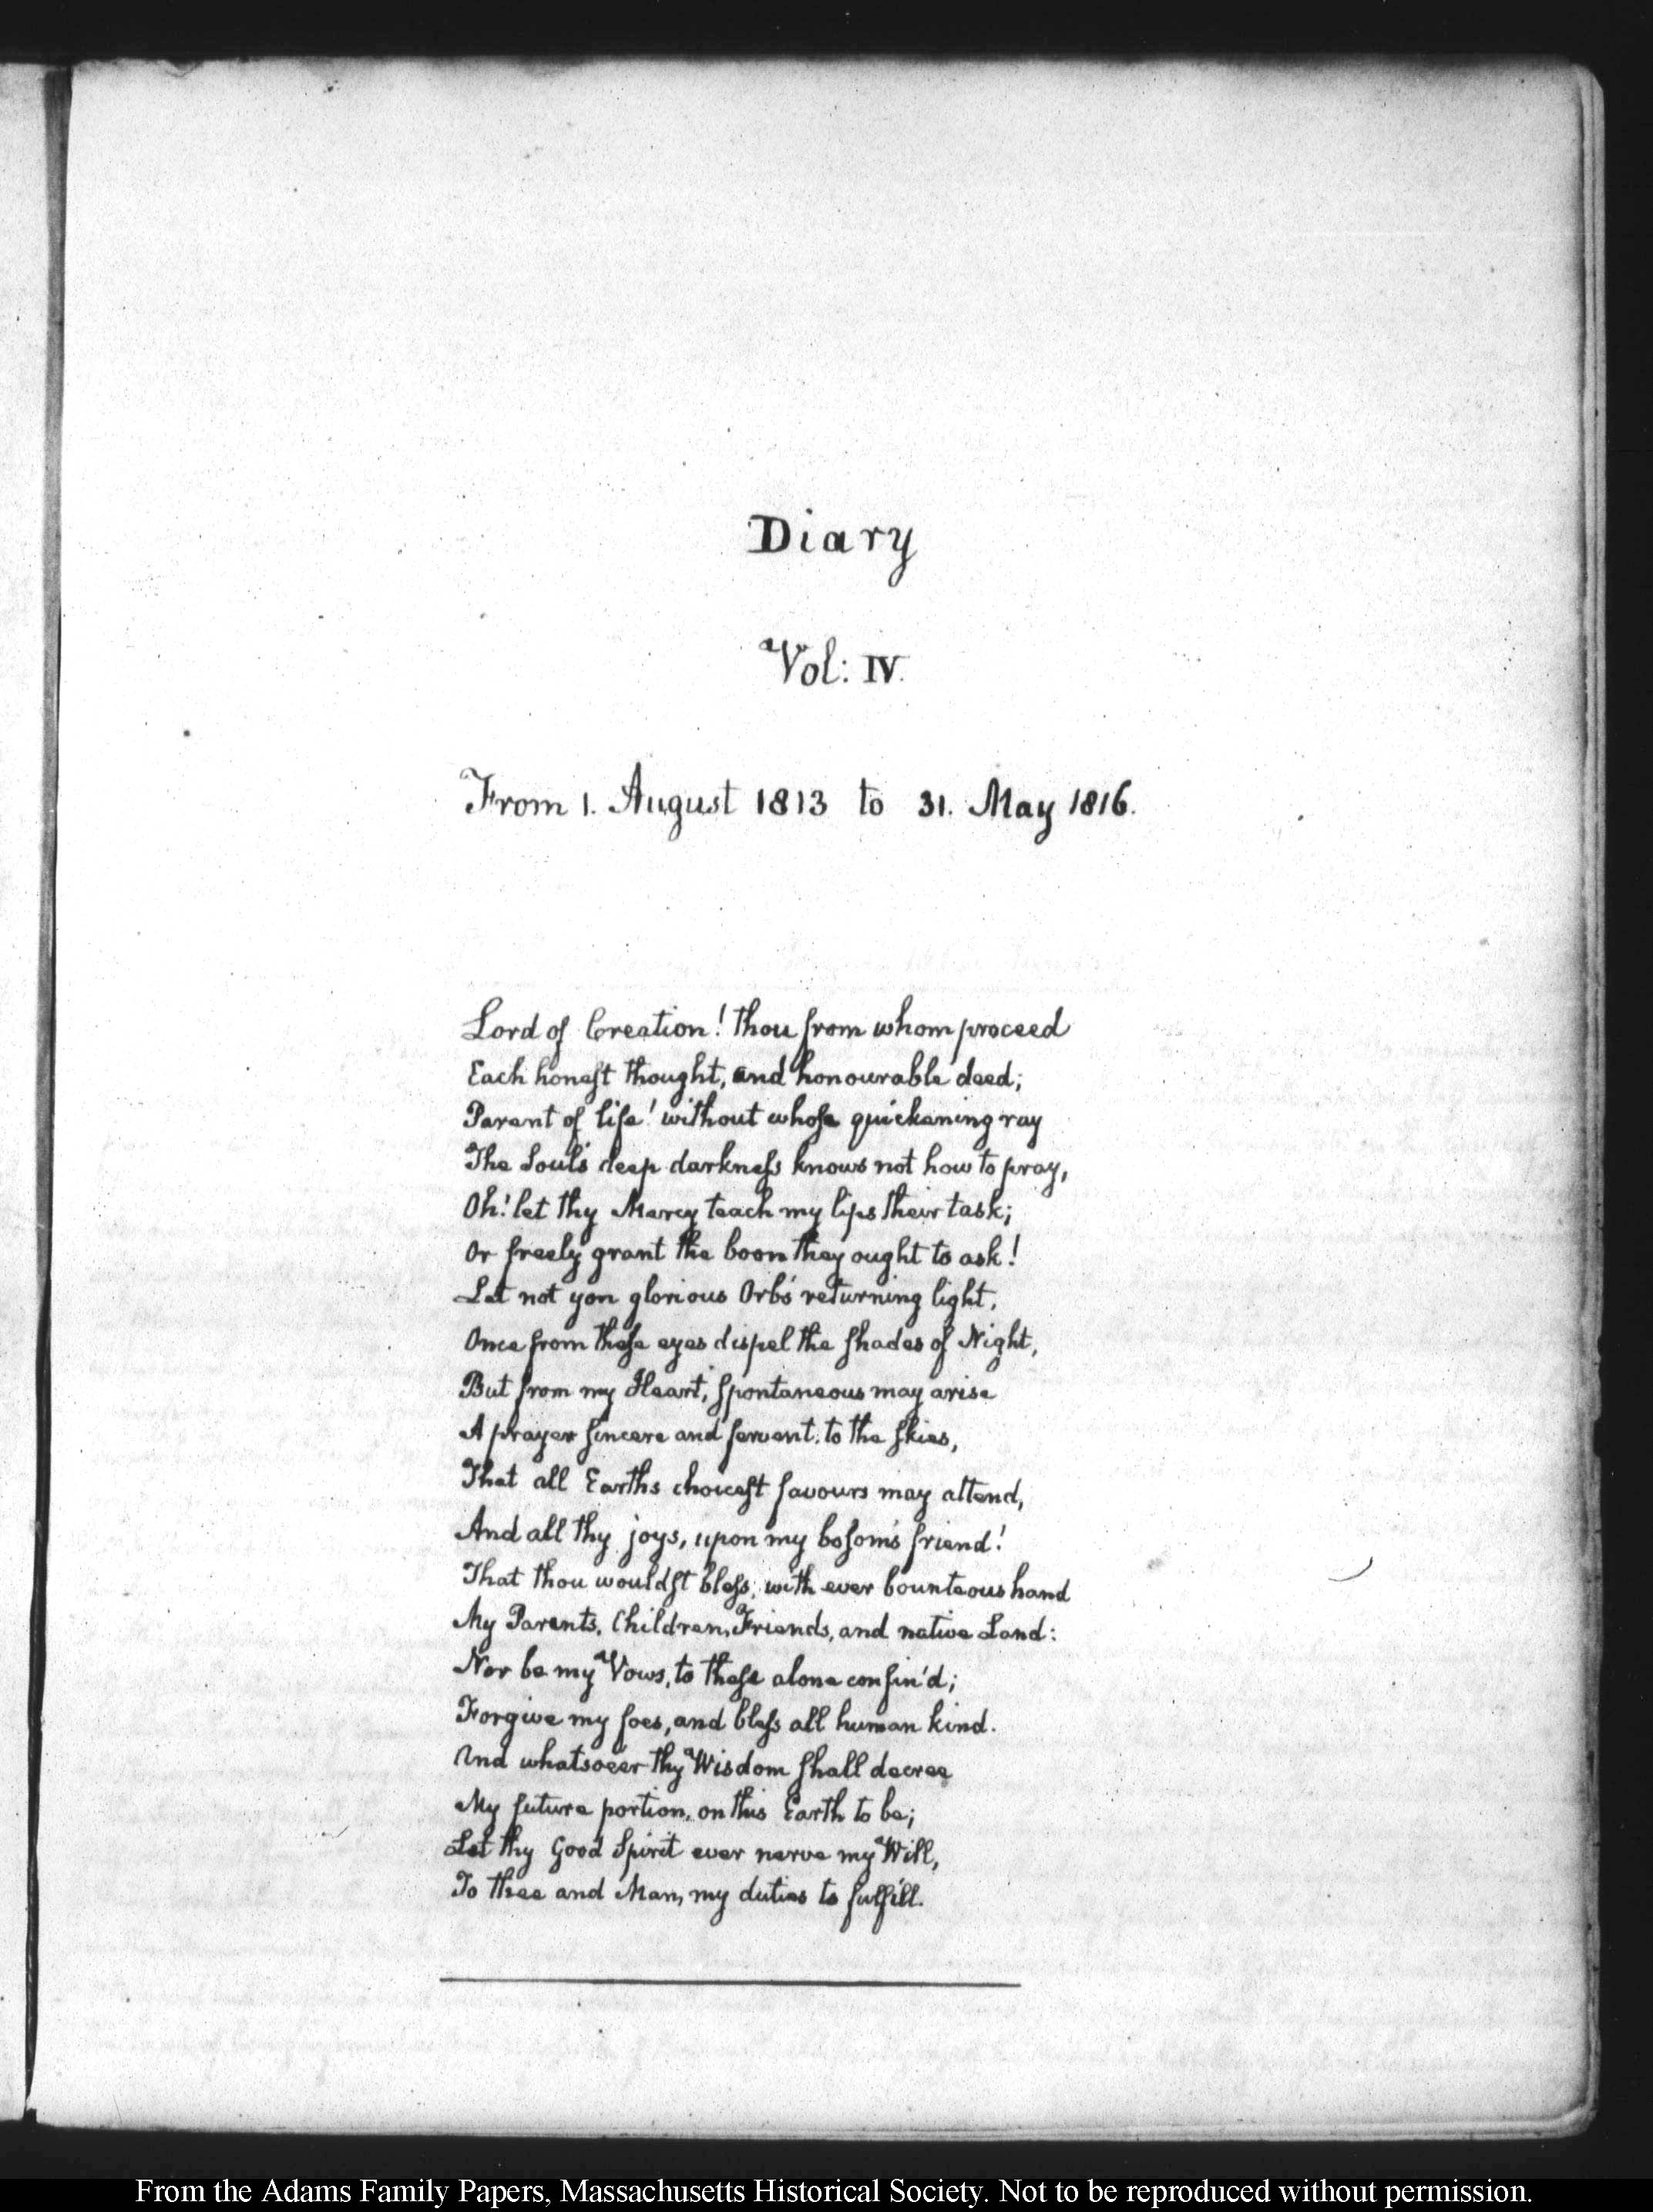 Diary
Vol: IV.
From 1. August 1813 to 31. May 1816.
Lord of Creation! thou from whom proceed
Each honeſt thought, and honourable deed;
Parent of life! without whoſe quickening ray
The Soul's deep darkneſs knows not how to pray,
Oh! let thy Mercy teach my lips their task;
Or freely grant the boon they ought to ask!
Let not yon glorious Orb's returning light,
Once from theſe eyes diſpel the ſhades of Night,
But from my Heart, ſpontaneous may arise
A prayer ſincere and fervent, to the ſkies,
That all Earths choiceſt favours may attend,
And all thy joys, upon my boſom's friend!
That thou wouldſt bleſs, with ever bounteous hand
My Parents, Children, Friends, and native Land:
Nor be my Vows, to theſe alone confin'd;
Forgive my foes, and bleſs all human kind.
And whatsoe'er thy Wisdom ſhall decree
My future portion, on this Earth to be;
Let thy Good Spirit ever nerve my Will,
To thee and Man, my duties to fulfill.
From the Adams Family Papers, Massachusetts Historical Society. Not to be reproduced without permission.